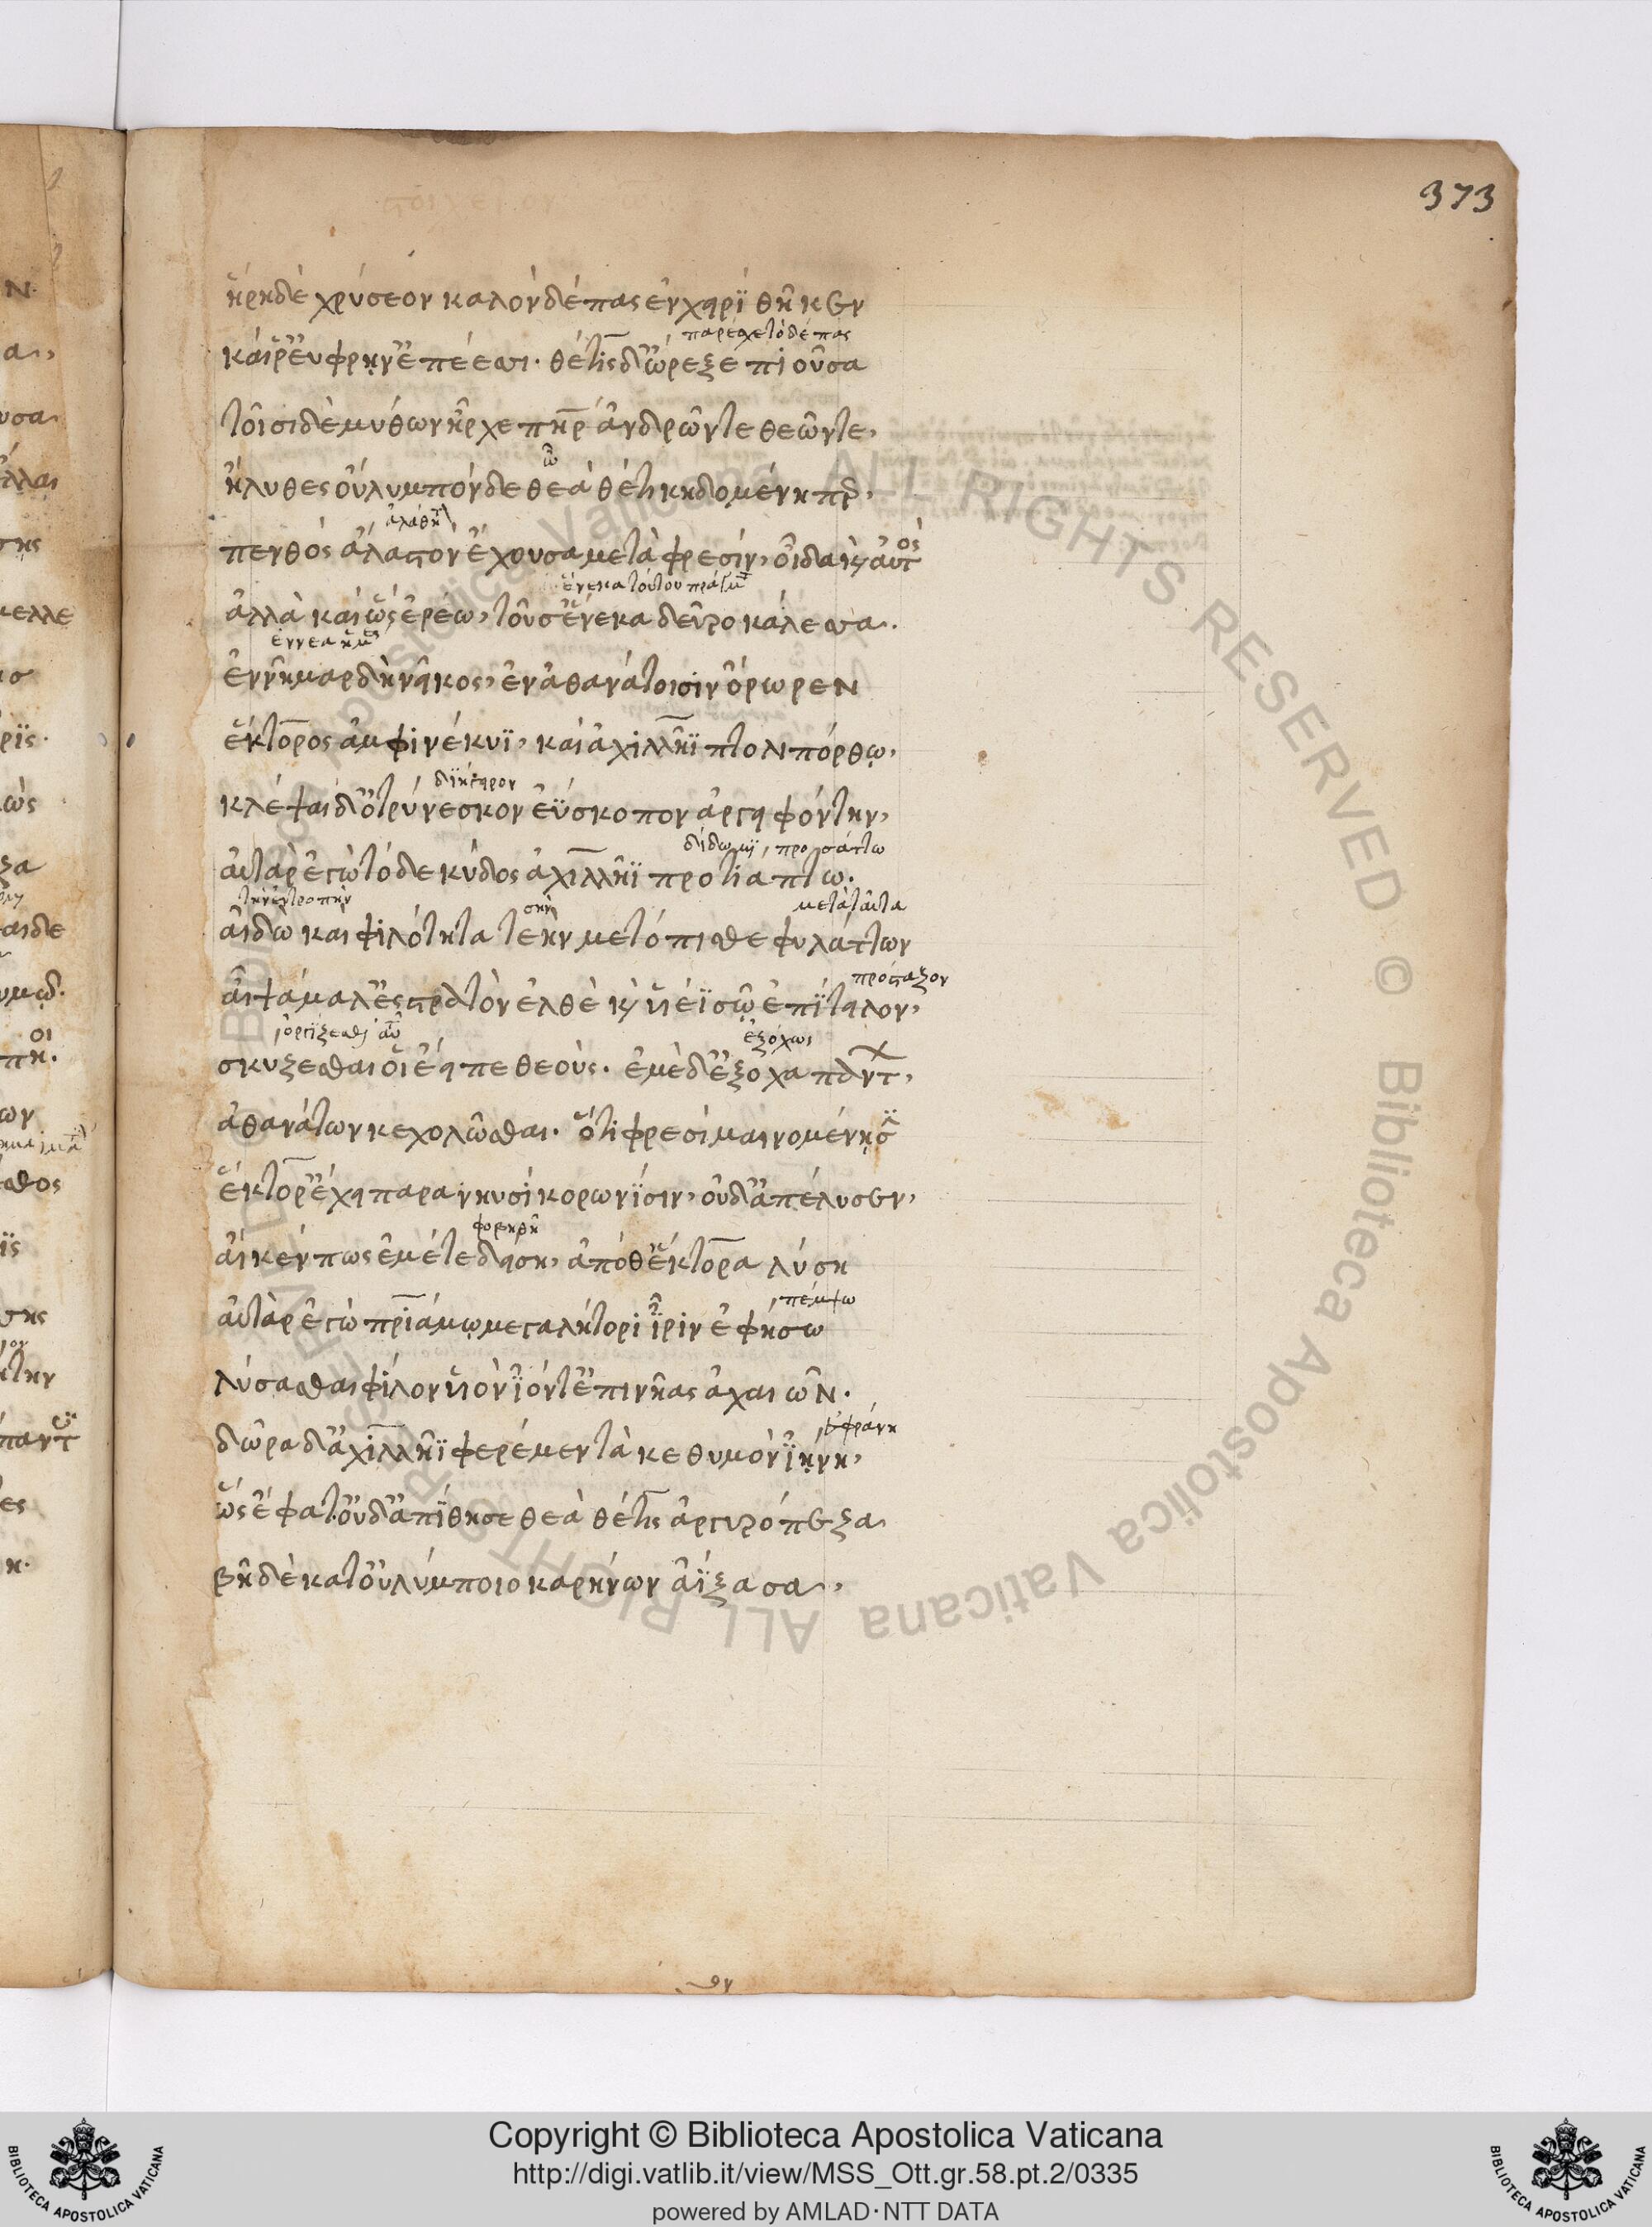 373
ἥρη δὲ χρύσεον καλὸν δέπας ἐν χειρὶ θῆκεν
παρέσχε τὸ δέπας
καί ῥ' εὔφρην' ἐπέεσσι· θέτις δ' ὤρεξε πιοῦσα
τοῖσι δὲ μύθων ἦρχε πηρ ἀνδρῶντε θεῶντε,
ὦ
ἤλυθες οὔλυμπόνδε θεὰ θέτι κηδομένη πρ,
ἀλαθητ
πενθὸς ἄλαστον ἔχουσα μετὰ φρεσίν, οἶδα κ αὐτὸς
ἕνεκα τούτου πράγμ
ἀλλὰ καὶ ὧς ἐρέω, τοῦ σ' ἕνεκα δεῦρο κάλεσσα.
ἐννεα ἡμ
ἐννῆμαρ δὴ νεῖκος, ἐν ἀθανάτοισιν ὄρωρεν
ἕκτορος ἀμφὶ νέκυϊ, καὶ ἀχιλλῆϊ πτολιπόρθω,
κλέψαι δ' ὀτρύνεσκον ἐΰσκοπον ἀργειφόντην,
δίδωμι, προσάπτω
αὐτὰρ ἐγὼ τόδε κύδος ἀχιλλῆϊ προτιαπτω.
τὴν ἐντροπὴν σὴν μετὰ ταῦτα
αἰδῶ καὶ φιλότητα τεὴν μετόπισθε φυλάττων
πρόσταξον
αἶψα μαλ' ἐς στρατὸν ἐλθὲ κ υἱέϊ σῷ ἐπίτειλον,
ἐξόχως
σκυζεσθαι οἷ εἴπε θεοὺς. ἐμὲ δ' ἔξοχα παντ,
ἀθανάτων κεχολῶσθαι. ὅτι φρεσὶ μαινομένησ
ἕκτορ' ἔχει παρα νηυσὶ κορωνίσιν, οὐδ' ἀπέλυσεν,
φοβηθῆ
αἴ κεν πως ἐμέ τε δείση, ἀπό θ' ἕκτορα λύση
πέμψω
αὐτὰρ ἐγὼ πριάμω μεγαλήτορι ἶριν ἐφήσω
λύσασθαι φίλον υἱὸν ἰόντ' ἐπι νῆας ἀχαιῶν.
εὐφράνη
δῶρα δ' ἀχιλλῆϊ φερέμεν τὰ κε θυμὸν ἰήνη,
ὣς ἔφατ. οὐδ' ἀπίθησε θεὰ θέτις ἀργυρόπεζα
βῆ δὲ κατ' οὐλύμποιο καρήνων ἀΐξασα,
Copyright © Biblioteca Apostolica Vaticana
http://digi.vatlib.it/view/MSS_Ott.gr.58.pt.2/0335
powered by AMLAD·NTT DATA